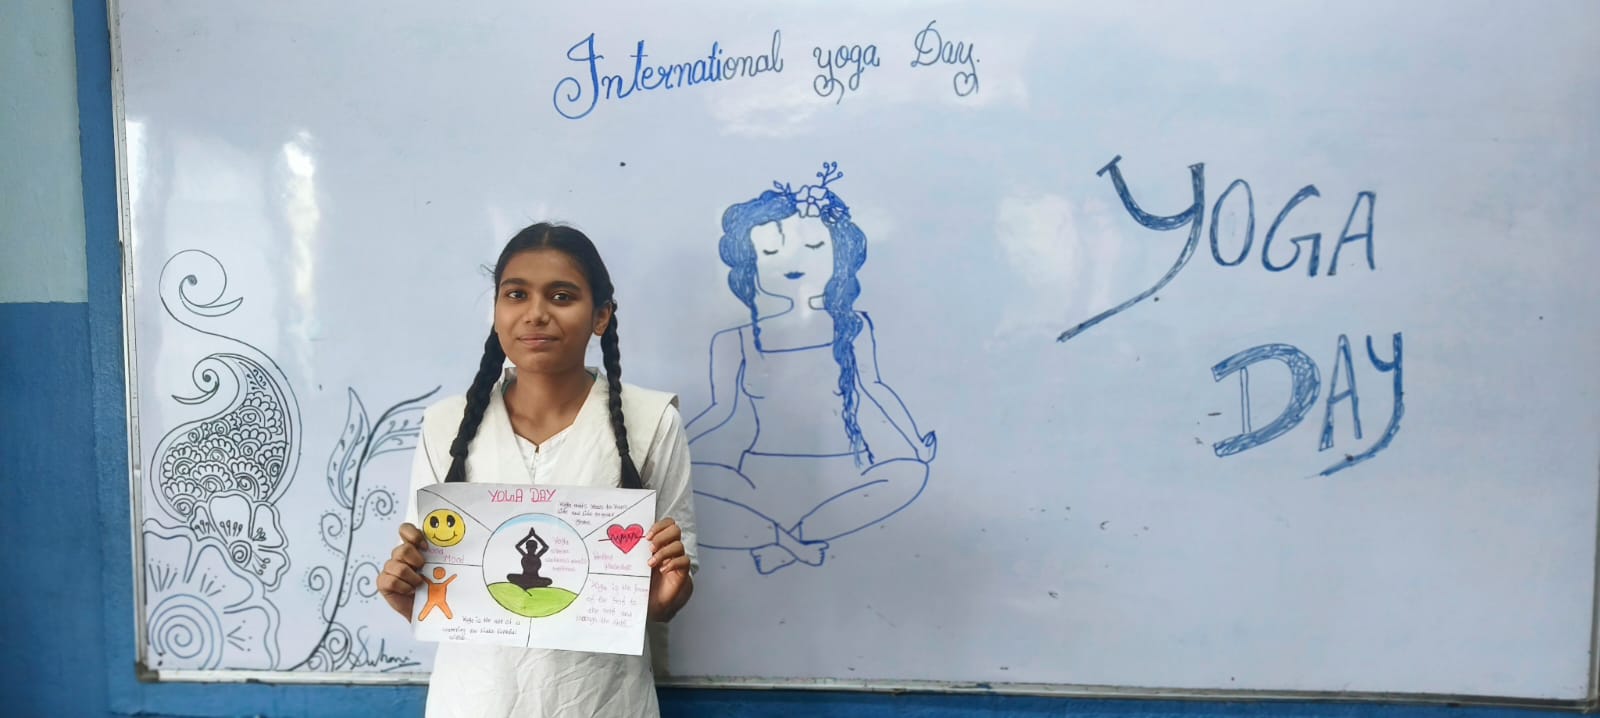 International yoga Day.
YOGA
DAY
YOGA DAY
Yoga adds Years to Years
Life and Life to your
Years.
Good
Mood
Yoga
where
wellness meets
Yoga is the
of the Self to
the self and
through the Self.
Yoga is the art of a
Suhani